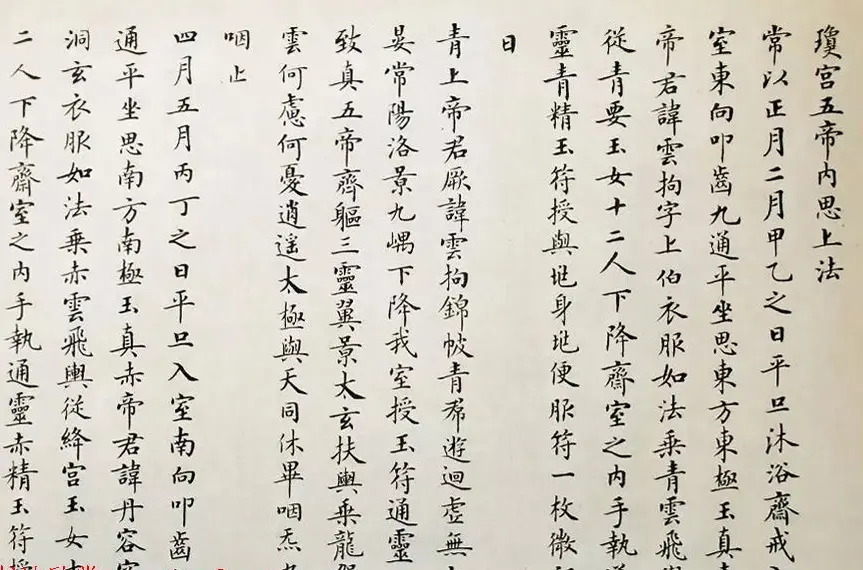 瓊宮五帝内思上法
常以正月二月甲乙之日平旦沐浴齋戒
室東向叩齒九通平坐思東方東極玉真
帝君諱雲拘字上伯衣服如法乘青雲飛
從青要玉女十二人下降齋室之内手執
靈青精玉符授與兆身兆便服符一枚微
日
青上帝君厥諱雲拘錦帔青帬遊迴虛無
晏常陽洛景九嵎下降我室授玉符通靈
致真五帝齊軀三靈翼景太玄扶輿乘龍
雲何慮何憂逍遥太極與天同休畢咽炁
咽止
四月五月丙丁之日平旦入室南向叩齒
通平坐思南方南極玉真赤帝君諱丹容
洞玄衣服如法乘赤雲飛輿從絳宮玉女
二人下降齋室之内手執通靈赤精玉符